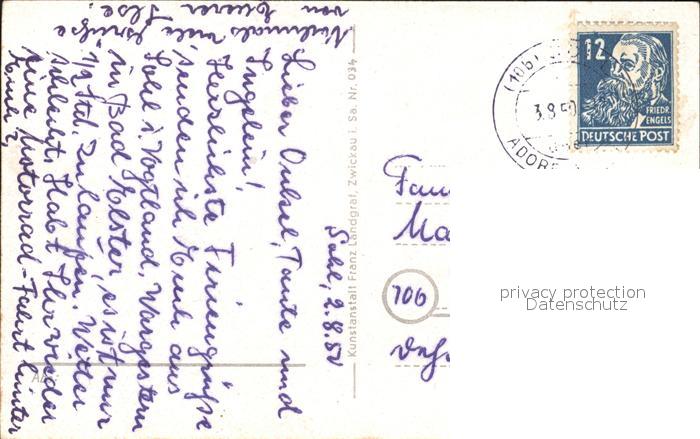 Sohl, 2.8.50
Lieber Onkel, Tante und
Ingelein!
Herzlichste Feriengrüße
senden ich Euch aus
Sohl i. Vogtland. War gestern
in Bad Elster, es ist nur
1/2 Std. zu laufen. Wetter
schlecht. Habt Ihr wieder
eine Motorrad-Fahrt hinter
Euch?
Nochmals viele Grüße
von Eurer Ilse.
Kunstanstalt Franz Landgraf, Zwickau i. Sa. Nr. 034
(10b)
3.8.50
ADORF
12
FRIEDR.
ENGELS
DEUTSCHE POST
Fam
Ma
10b
privacy protection
Datenschutz